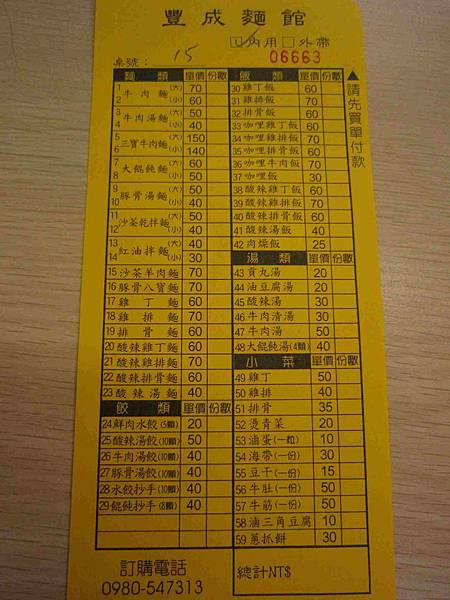 豐成麵館
☑內用 □外帶
桌號：15 06663
▲請先買單付款
麵類 單價 份數
1 牛肉麵(大) 70
2 (小) 60
3 牛肉湯麵(大) 50
4 (小) 40
5 三寶牛肉麵(大) 150
6 (小) 140
7 大餛飩麵(大) 60
8 (小) 50
9 豚骨湯麵(大) 50
10 (小) 40
11 沙茶乾拌麵(大) 50
12 (小) 40
13 紅油拌麵(大) 40
14 (小) 30
15 沙茶羊肉麵 70
16 豚骨八寶麵 70
17 雞丁麵 60
18 雞排麵 70
19 排骨麵 60
20 酸辣雞丁麵 60
21 酸辣雞排麵 70
22 酸辣排骨麵 60
23 酸辣湯麵 40
餃類 單價 份數
24 鮮肉水餃(5顆) 20
25 酸辣湯餃(10顆) 50
26 牛肉湯餃(10顆) 40
27 豚骨湯餃(10顆) 40
28 水餃抄手(10顆) 40
29 餛飩抄手(8顆) 40
訂購電話
0980-547313
飯類 單價 份數
30 雞丁飯 60
31 雞排飯 70
32 排骨飯 60
33 咖哩雞丁飯 60
34 咖哩雞排飯 70
35 咖哩排骨飯 60
36 咖哩牛肉飯 70
37 咖哩飯 30
38 酸辣雞丁飯 60
39 酸辣雞排飯 70
40 酸辣排骨飯 60
41 酸辣湯飯 40
42 肉燥飯 25
湯類 單價 份數
43 貢丸湯 20
44 油豆腐湯 20
45 酸辣湯 30
46 牛肉清湯 30
47 牛肉湯 50
48 大餛飩湯(4顆) 40
小菜 單價 份數
49 雞丁 50
50 雞排 40
51 排骨 35
52 燙青菜 20
53 滷蛋(一粒) 10
54 海帶(一份) 30
55 豆干(一份) 15
56 牛肚(一份) 50
57 牛筋(一份) 50
58 滷三角豆腐 10
59 蔥抓餅 30
總計NT$